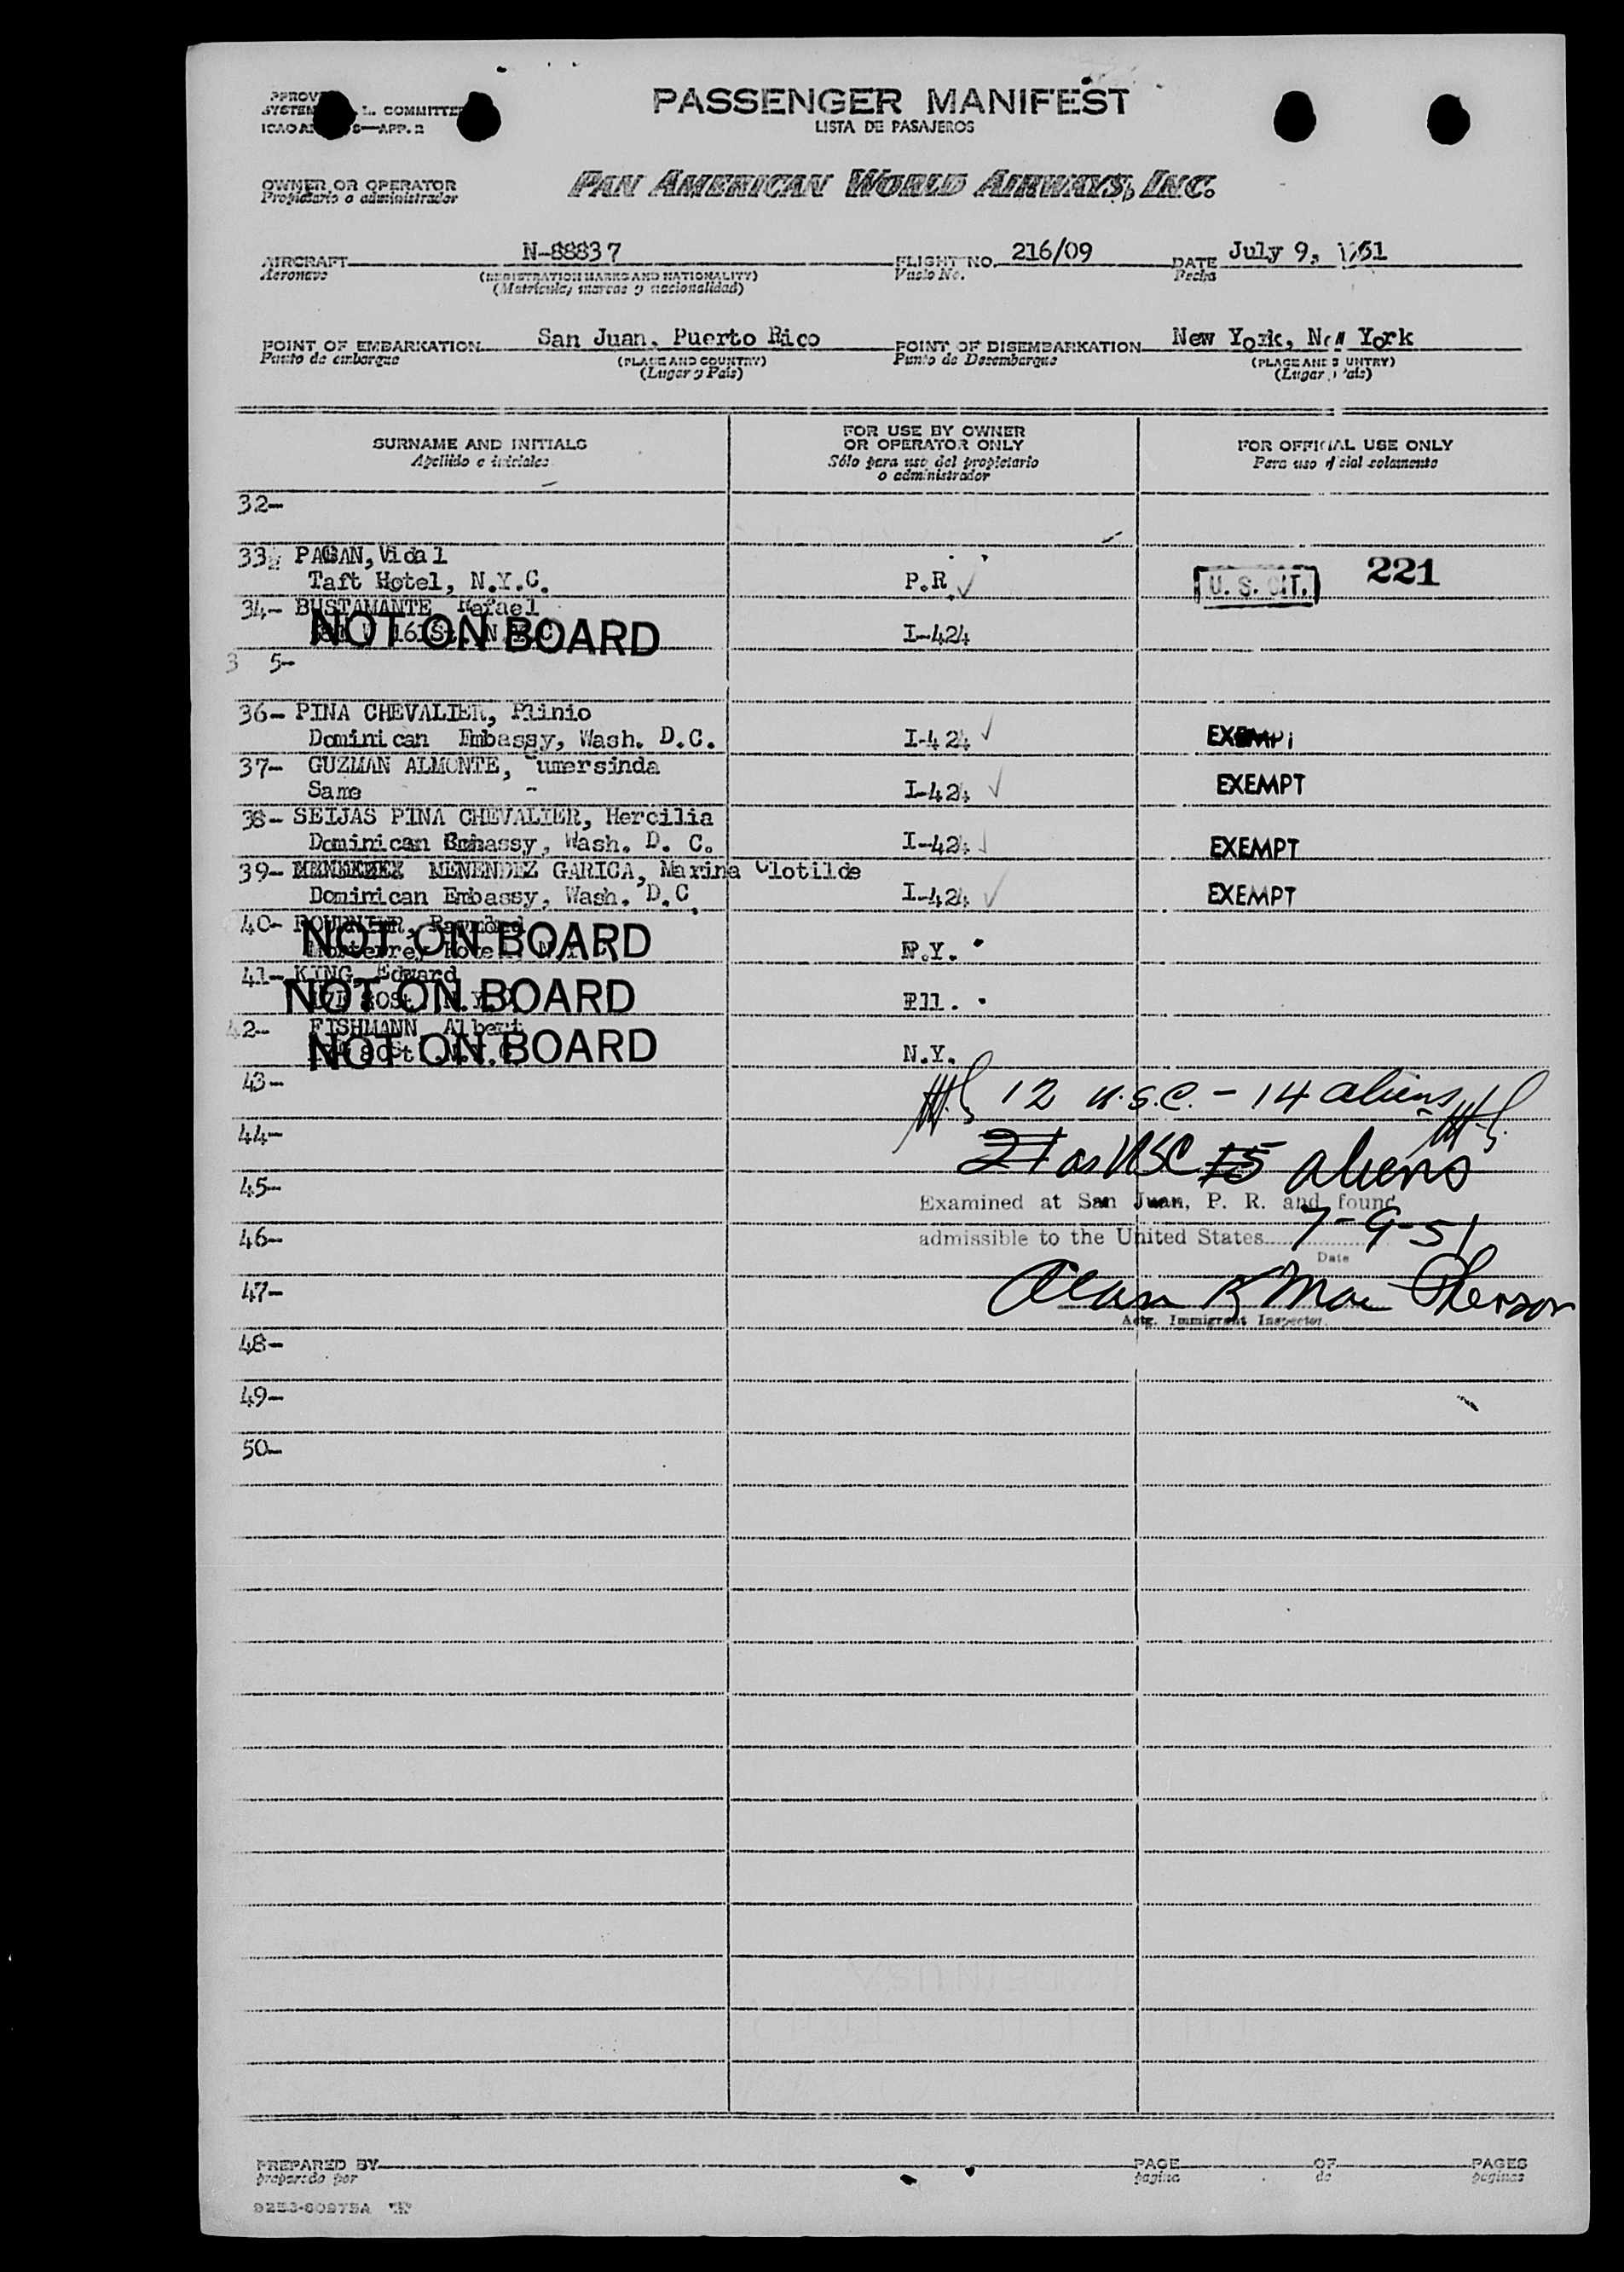 PASSENGER MANIFEST
LISTA DE PASAJEROS
COMMITTEE
APP. 2
OWNER OR OPERATOR
Propietario o administrador
PAN AMERICAN WORLD AIRWAYS, INC.
AIRCRAFT N-88837 FLIGHT NO. 216/09 DATE July 9, 1951
Aeronave (REGISTRATION MARKS AND NATIONALITY) Vuelo No. Fecha
(Matricula, marcas y nacionalidad)
POINT OF EMBARKATION San Juan, Puerto Rico POINT OF DISEMBARKATION New York, New York
Punto de embarque (PLACE AND COUNTRY) Punto de Desembarque (PLACE AND COUNTRY)
(Lugar y Pais) (Lugar y Pais)
SURNAME AND INITIALS FOR USE BY OWNER OR OPERATOR ONLY FOR OFFICIAL USE ONLY
Apellido e iniciales Sólo para uso del propietario o administrador Para uso oficial solamente
32-
33- PAGAN, Vidal
Taft Hotel, N.Y.C. P.R U. S. CIT. 221
34- BUSTAMANTE Rafael
NOT ON BOARD I-424
3 5-
36- PINA CHEVALIER, Plinio
Dominican Embassy, Wash. D.C. I-424 EXEMPT
37- GUZMAN ALMONTE, Gumersinda
Same I-424 EXEMPT
38- SEIJAS PINA CHEVALIER, Hercilia
Dominican Embassy, Wash. D. C. I-424 EXEMPT
39- MENENDEZ GARICA, Marina Clotilde
Dominican Embassy, Wash. D.C I-424 EXEMPT
40-
NOT ON BOARD
41- KING, Edward
NOT ON BOARD
42- FISHMANN Albert
NOT ON BOARD N.Y.
43-
12 U.S.C. - 14 aliens
44-
21 as USC 15 aliens
45-
Examined at San Juan, P. R. and found
46-
admissible to the United States 7-9-51
Date
47-
Alan K Mac Pherson
Actg. Immigrant Inspector.
48-
49-
50-
PREPARED BY PAGE OF PAGES
preparado por pagina de paginas